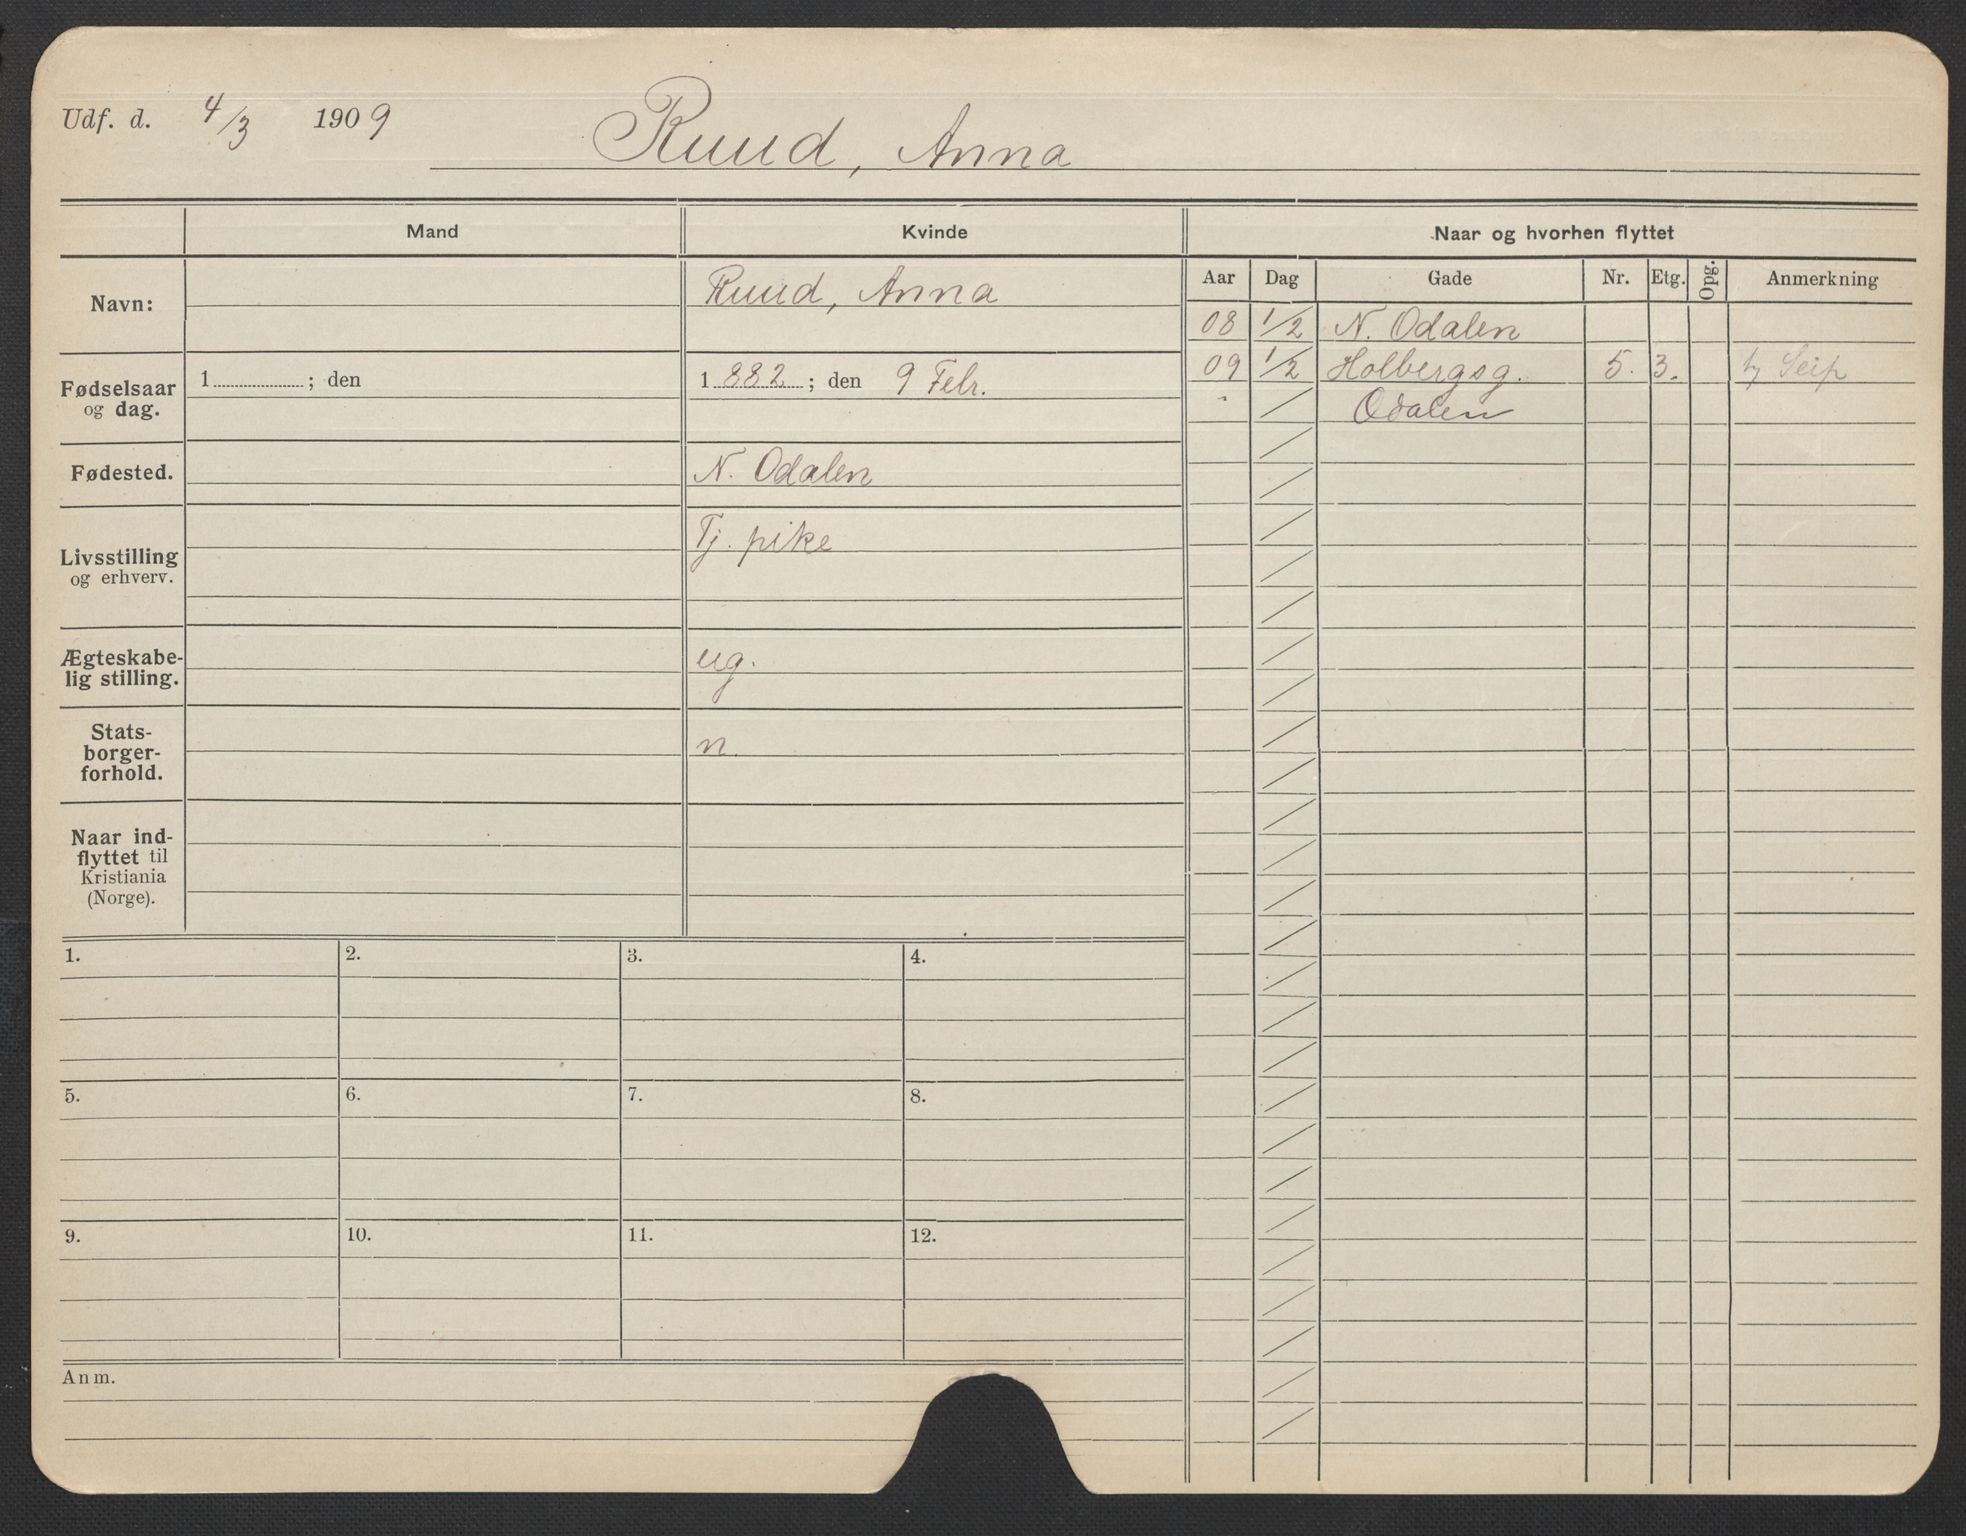 Udf. d. 4/3 1909 Ruud, Anna
Mand Kvinde Naar og hvorhen flyttet
Aar Dag Gade Nr. Etg. Opg. Anmerkning
Navn: Ruud, Anna
08 1/2 N. Odalen
09 1/2 Holbergsg. 5. 3. Seip
" Odalen
Fødselsaar
og dag.
1 ; den 1882 ; den 9 Febr.
Fødested. N. Odalen
Livsstilling
og erhverv.
Tj. pike
Ægteskabe-
lig stilling.
ug.
Stats-
borger-
forhold.
n.
Naar ind-
flyttet til
Kristiania
(Norge).
1. 2. 3. 4.
5. 6. 7. 8.
9. 10. 11. 12.
Anm.